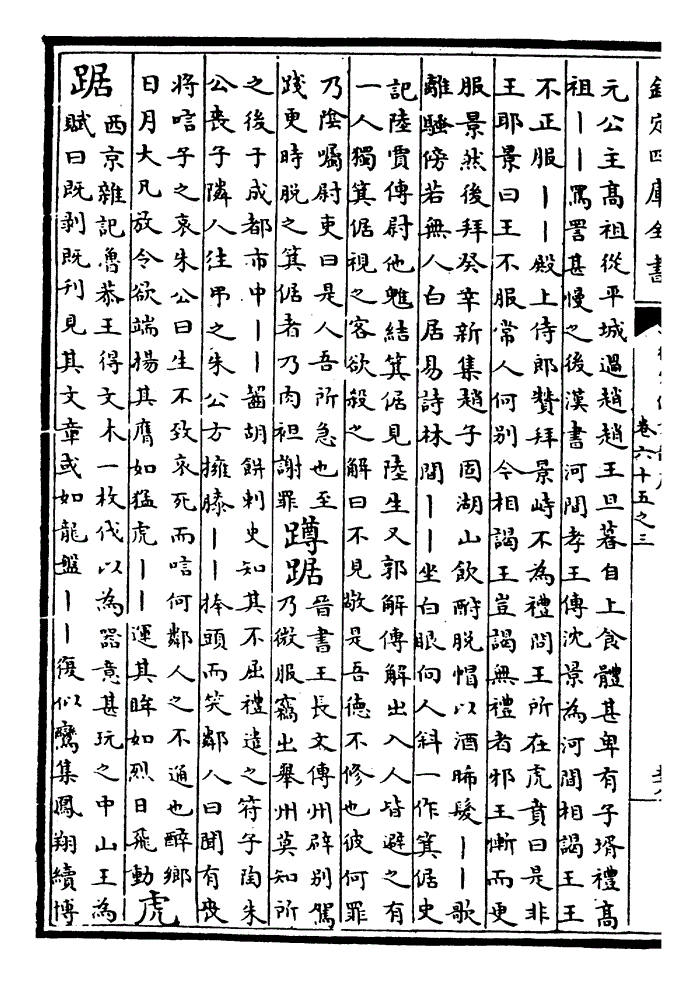 欽定四庫全書
卷六十五之三
元公主高祖從平城過趙趙王旦暮自上食體甚卑有子壻禮高
祖丨丨罵詈甚慢之後漢書河間孝王傳沈景為河間相謁王王
不正服丨丨殿上侍郎贊拜景峙不為禮問王所在虎賁曰是非
王耶景曰王不服常人何别今相謁王豈謁無禮者邪王慚而更
服景然後拜癸辛新集趙子固湖山飲酣脱帽以酒晞髮丨丨歌
離騷傍若無人白居易詩林間丨丨坐白眼向人斜一作箕倨史
記陸賈傳尉他魋結箕倨見陸生又郭解傳解出入人皆避之有
一人獨箕倨視之客欲殺之解曰不見敬是吾德不修也彼何罪
乃陰囑尉吏曰是人吾所急也至
踐更時脱之箕倨者乃肉袒謝罪
蹲踞
晉書王長文傳州辟别駕
乃微服竊出舉州莫知所
之後于成都市中丨丨齧胡餅刺史知其不屈禮遣之符子陶朱
公喪子隣人往弔之朱公方擁膝丨丨捧頭而笑鄰人曰聞有喪
將唁子之哀朱公曰生不致哀死而唁何鄰人之不通也醉鄉
日月大凡放令欲端揚其膺如猛虎丨丨運其眸如烈日飛動
虎
踞
西京雜記魯恭王得文木一枚伐以為器意甚玩之中山王為
賦曰既剥既刊見其文章或如龍盤丨丨復似鸞集鳳翔續博